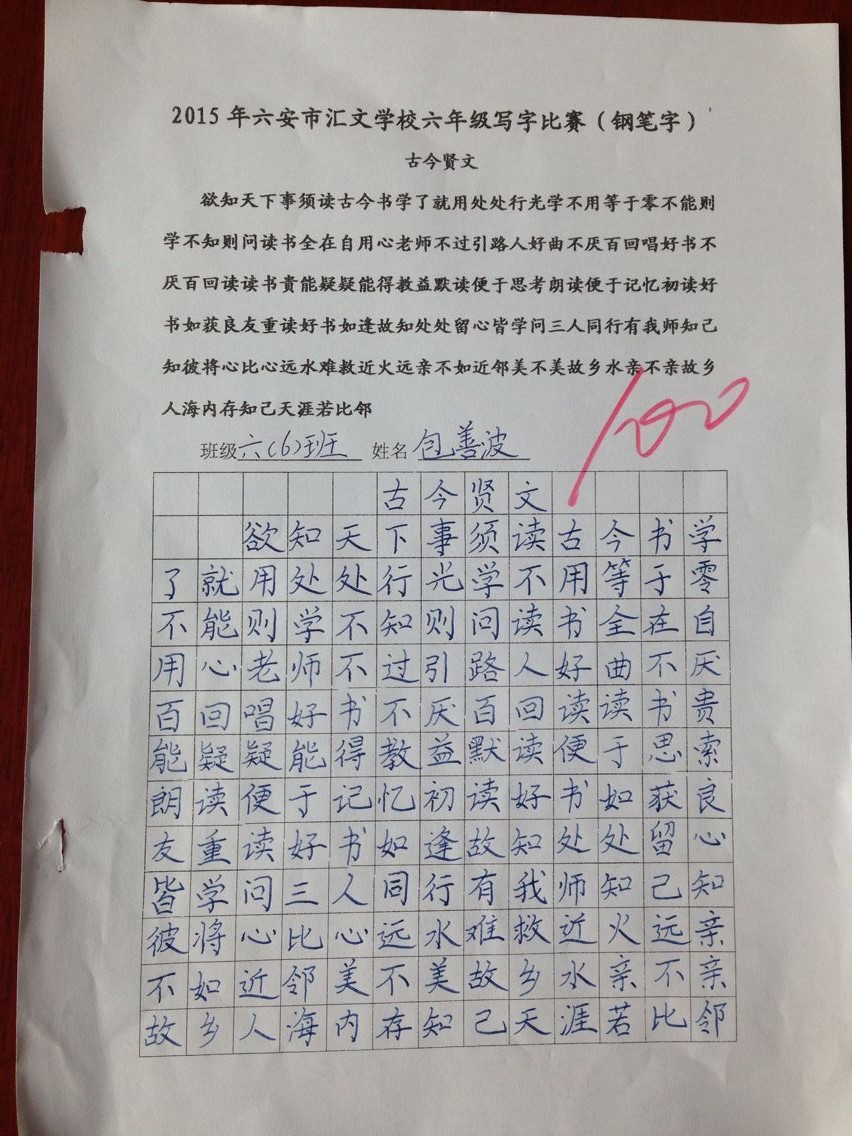 2015年六安市汇文学校六年级写字比赛（钢笔字）
古今贤文
欲知天下事须读古今书学了就用处处行光学不用等于零不能则
学不知则问读书全在自用心老师不过引路人好曲不厌百回唱好书不
厌百回读读书贵能疑疑能得教益默读便于思考朗读便于记忆初读好
书如获良友重读好书如逢故知处处留心皆学问三人同行有我师知己
知彼将心比心远水难救近火远亲不如近邻美不美故乡水亲不亲故乡
人海内存知己天涯若比邻
100
班级六(6)班 姓名包善波
古今贤文
欲知天下事须读古今书学
了就用处处行光学不用等于零
不能则学不知则问读书全在自
用心老师不过引路人好曲不厌
百回唱好书不厌百回读读书贵
能疑疑能得教益默读便于思索
朗读便于记忆初读好书如获良
友重读好书如逢故知处处留心
皆学问三人同行有我师知己知
彼将心比心远水难救近火远亲
不如近邻美不美故乡水亲不亲
故乡人海内存知己天涯若比邻